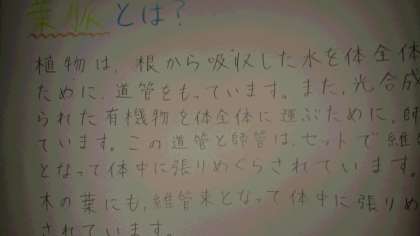 葉脈とは?
植物は、根から吸収した水を体全体
ために、道管をもっています。また、光合
られた有機物を体全体に運ぶために、師
ています。この道管と師管は、セットで維
となって体中に張りめぐらされています。
木の葉にも、維管束となって体中に張りめ
されています。